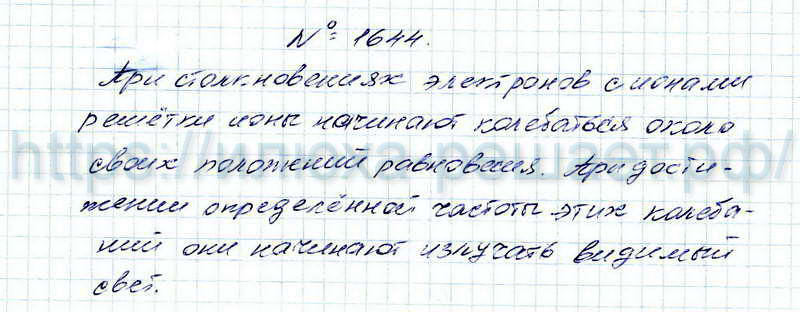 № 1644.
При столкновениях электронов с ионами
решётки ионы начинают колебаться около
https://школа.решает.рф/
своих положений равновесия. При дости-
жении определённой частоты этих колеба-
ний они начинают излучать видимый
свет.